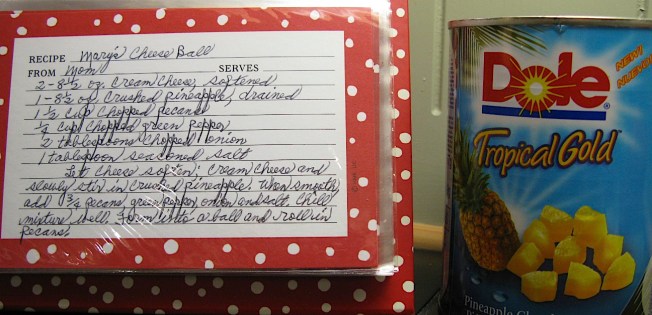 RECIPE Mary's Cheese Ball
FROM Mom SERVES
2-8½ oz. Cream Cheese, softened
1-8½ oz Crushed pineapple, drained
1½ cup Chopped pecans
¼ cup Chopped green pepper
2 tablespoons Chopped onion
1 tablespoon seasoned salt
Let cheese soften; Cream Cheese and
slowly stir in crushed pineapple. When smooth,
add 1¾ pecans, green pepper, onion and salt. Chill
mixture well. Form into a ball and roll in
pecans.
Dole
®
NEW!
Tropical Gold
Pineapple